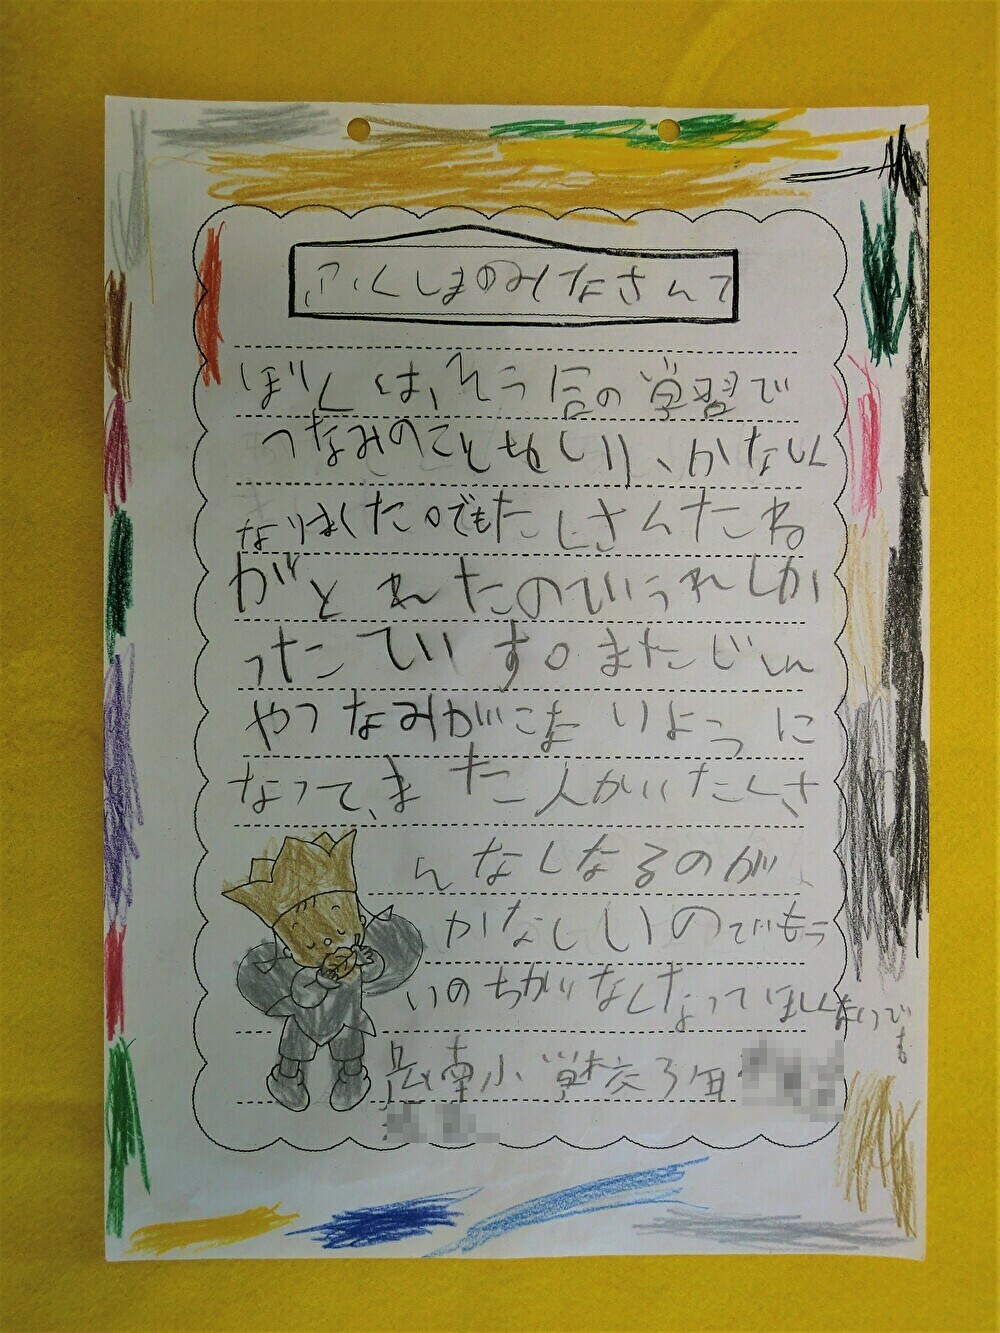 ふくしまのみなさんて
ぼくは、そう合の学習で
つなみのこともしり、かなしく
なりました。でもたくさんたね
がとれたのでうれしか
ったです。またじしん
やつなみがこないように
なって、また人がいたくさ
んなくなるのが
かなしいのでもう
いのちがなくなってほしくないです
岳南小学校3年